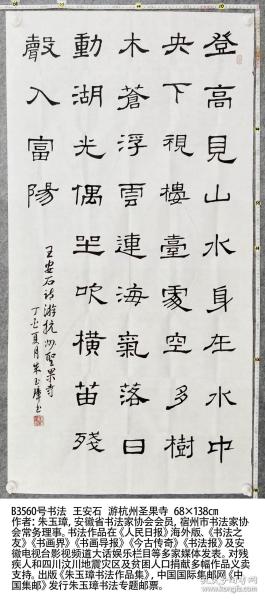 登高見山水身在水中
央下視樓臺處空多樹
木蒼浮雲連海氣落日
動湖光偶坐吹橫笛殘
聲入富陽
王安石詩游杭州聖果寺
丁亥夏月朱玉璋书
B3560号书法 王安石 游杭州圣果寺 68×138cm
作者:朱玉璋,安徽省书法家协会会员,宿州市书法家协
会常务理事。书法作品在《人民日报》海外版、《书法之
友》《书画界》《书画导报》《今古传奇》《书法报》及安
徽电视台影视频道大话娱乐栏目等多家媒体发表。对残
疾人和四川汶川地震灾区及贫困人口捐献多幅作品义卖
支持。出版《朱玉璋书法作品集》,中国国际集邮网《中
国集邮》发行朱玉璋书法专题邮票。